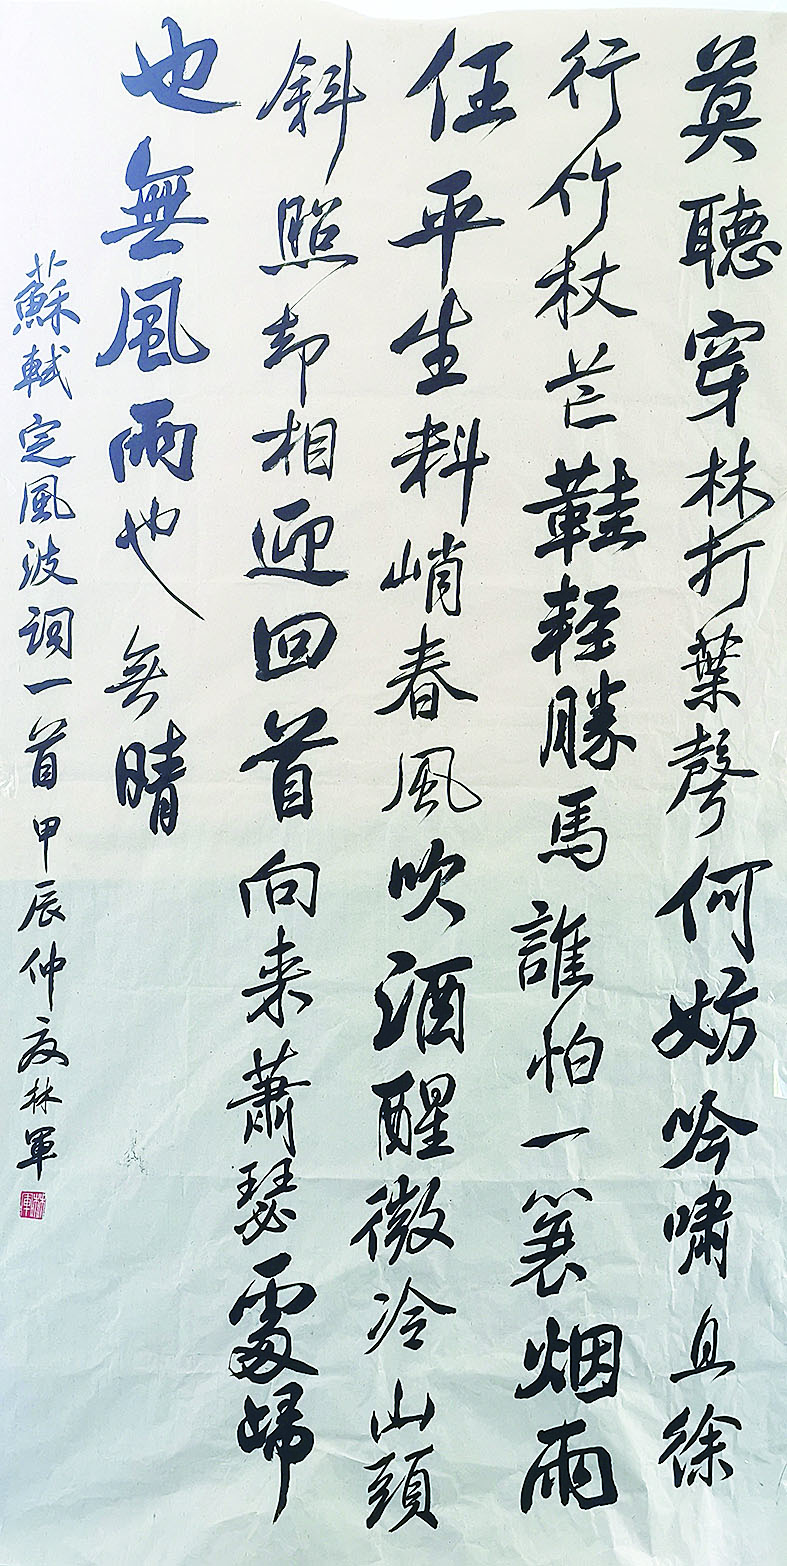 莫聽穿林打葉聲何妨吟嘯且徐
行竹杖芒鞋輕勝馬誰怕一蓑烟雨
任平生料峭春風吹酒醒微冷山頭
斜照却相迎回首向来蕭瑟處歸
也無風雨也無晴
蘇軾定風波詞一首甲辰仲夏林軍